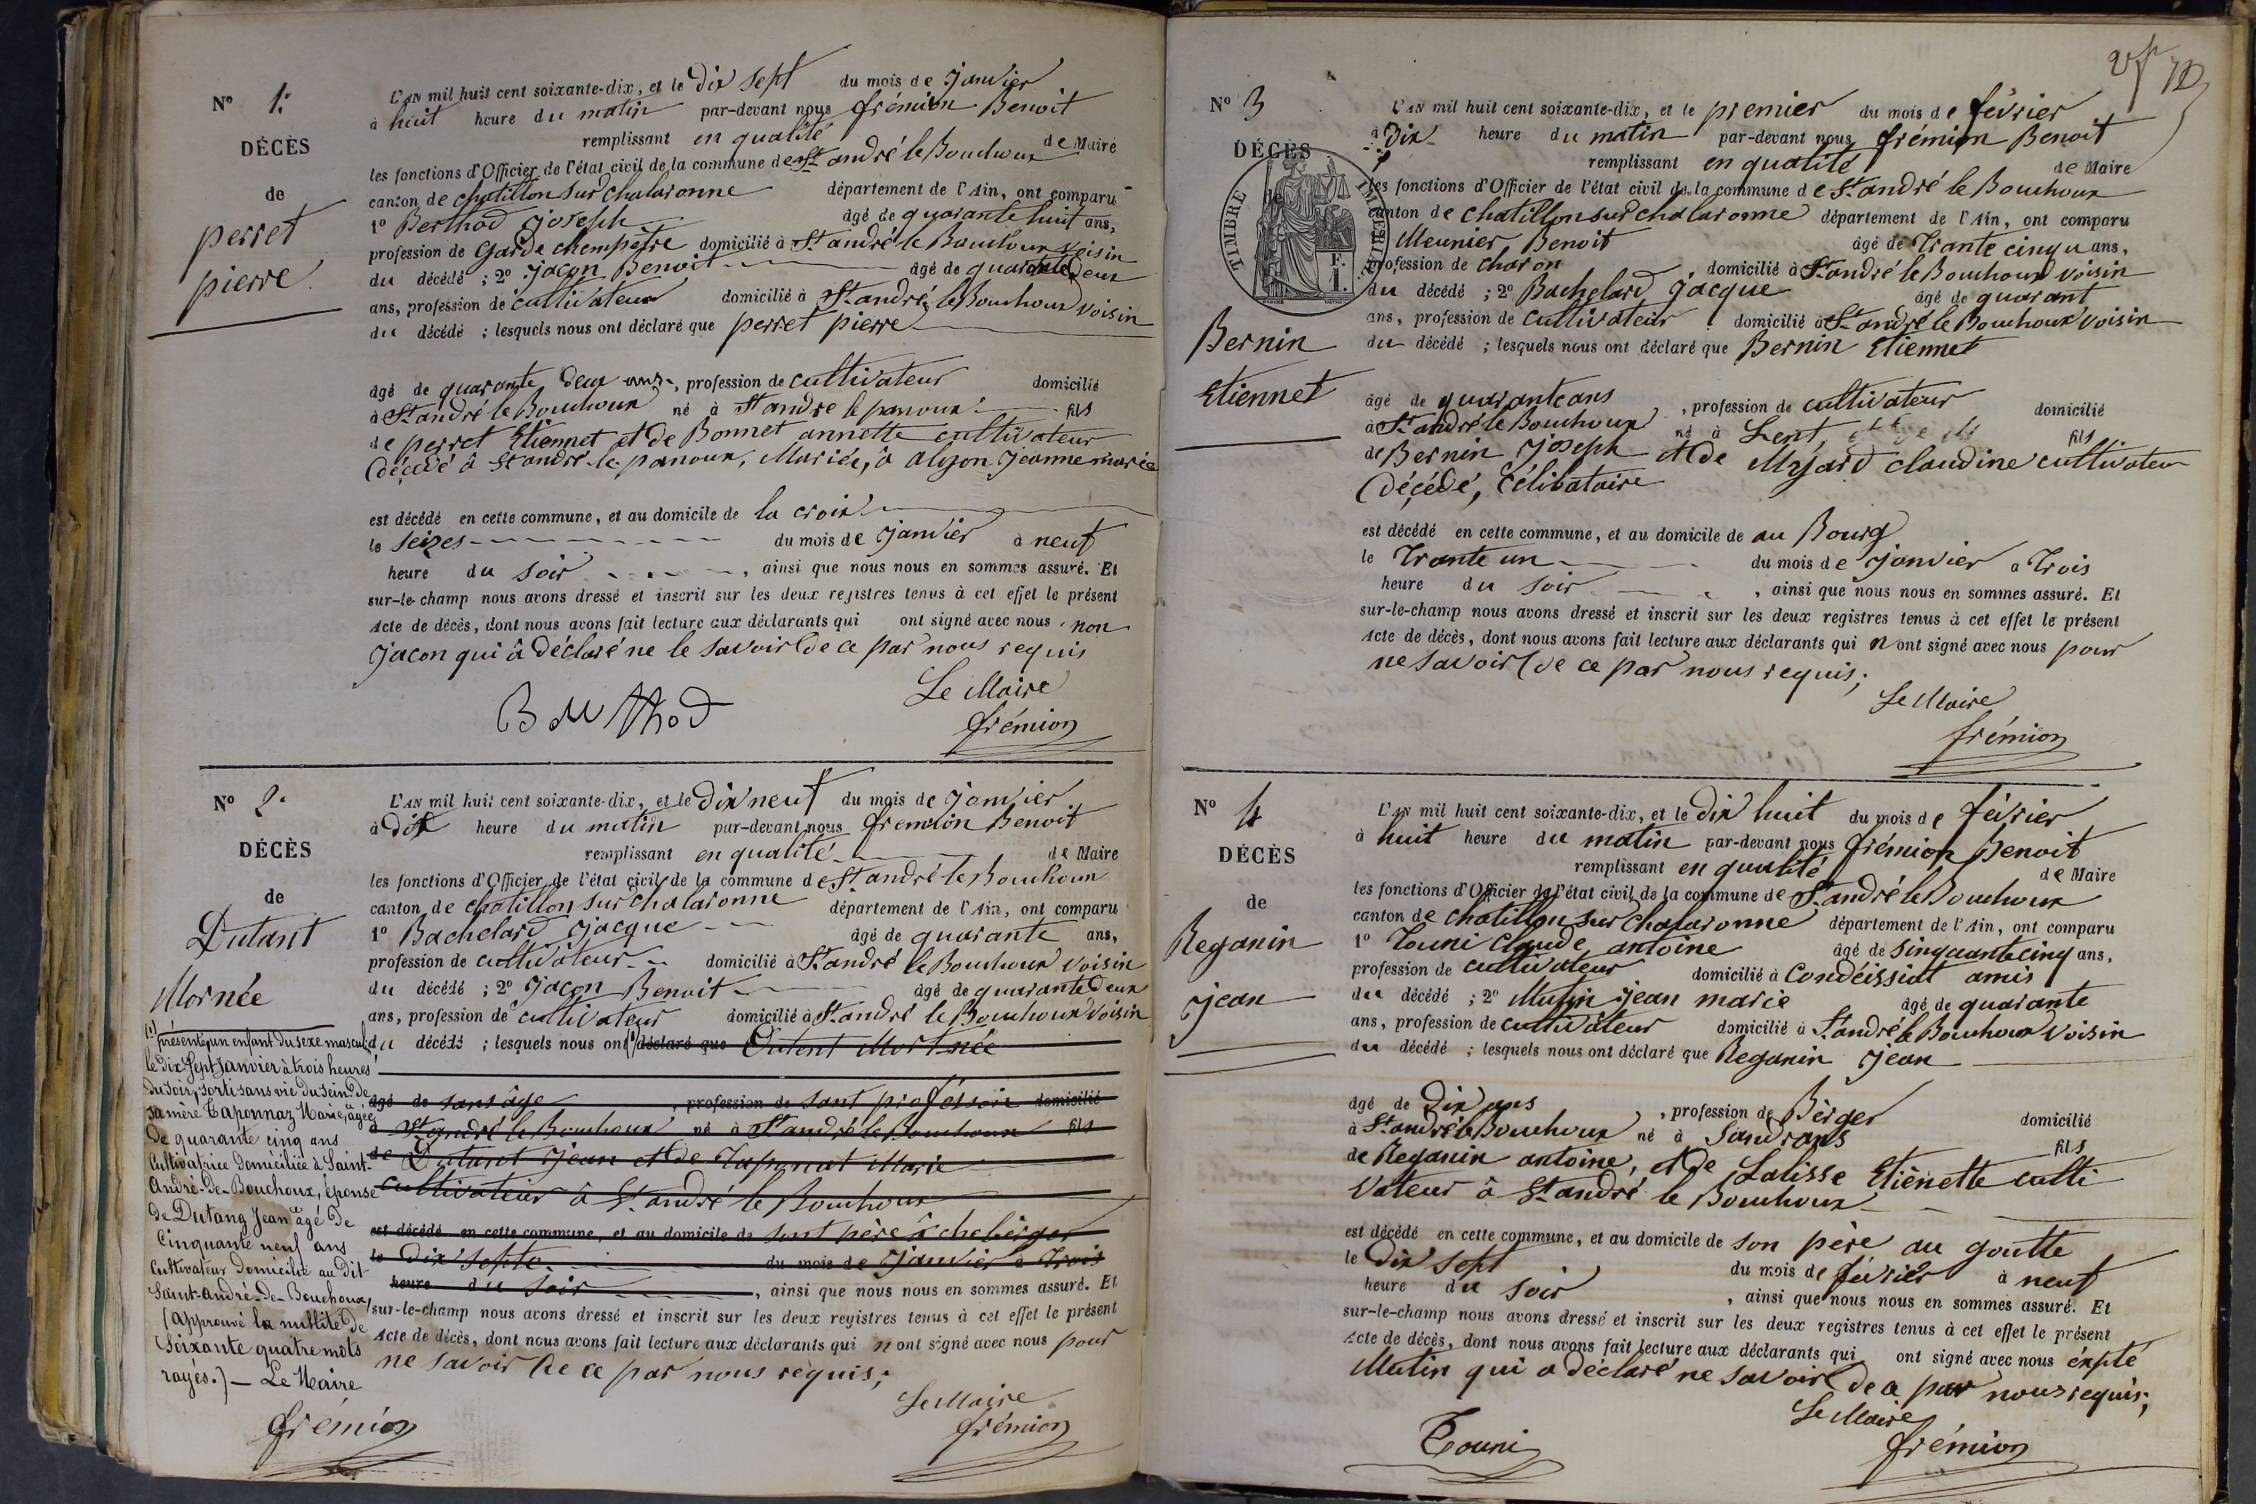 N° 1.
DÉCÈS
de
perret
pierre
L'AN mil huit cent soixante-dix, et le Dix sept du mois de janvier
à huit heure du matin par-devant nous frémion Benoit
remplissant en qualité de Maire
les fonctions d'Officier de l'état civil de la commune de St andré le Bouchoux
canton de chatillon sur chalaronne département de l'Ain, ont comparu
1° Berthod joseph âgé de quarante huit ans,
profession de Garde chempètre domicilié à St andré le Bouchoux voisin
du décédé ; 2° jacon Benoit âgé de quarante Deux
ans, profession de cultivateur domicilié à St andré le Bouchoux voisin
du décédé ; lesquels nous ont déclaré que perret pierre
âgé de quarante Deux ans, profession de cultivateur domicilié
à St andré le Bouchoux né à St andre le panoux fils
de perret Etiennet et de Bonnet annette cultivateur
Décédé à St andré le panoux, Mariée, à alyon Jeanne marie
est décédé en cette commune, et au domicile de la croix
le seizes du mois de janvier à neuf
heure du soir, ainsi que nous nous en sommes assuré. Et
sur-le-champ nous avons dressé et inscrit sur les deux registres tenus à cet effet le présent
Acte de décès, dont nous avons fait lecture aux déclarants qui ont signé avec nous non
jacon qui à Déclaré ne le savoir De ce par nous requis
Le Maire
Berthod frémion
N° 2.
DÉCÈS
de
Dutant
Mornée
L'AN mil huit cent soixante-dix, et le Dix neuf du mois de janvier
à dix heure du matin par-devant nous fremion Benoit
remplissant en qualité de Maire
les fonctions d'Officier de l'état civil de la commune de St andré le Bouchoux
canton de chatillon sur chalaronne département de l'Ain, ont comparu
1° Bachelard jacque âgé de quarante ans,
profession de cultivateur domicilié à St andré le Bouchoux voisin
du décédé ; 2° jacon Benoit âgé de quarante Deux
ans, profession de cultivateur domicilié à St andré le Bouchoux voisin
du décédé ; lesquels nous ont (1) déclaré que Dutent Mort née
âgé de sans âge, profession de sant proféssoin domicilié
à St andré le Bouchoux né à St andré le Bouchoux fils
de Dutant jean et de Taponat Marie
cultivateur à St andré le Bouchoux
est décédé en cette commune, et au domicile de sont père à cheberger
le Dix septe du mois de janvier à Trois
heure du soir, ainsi que nous nous en sommes assuré. Et
sur-le-champ nous avons dressé et inscrit sur les deux registres tenus à cet effet le présent
Acte de décès, dont nous avons fait lecture aux déclarants qui n ont signé avec nous pour
ne savoir De ce par nous requis;
Le Maire
frémion
(1) présenté un enfant du sexe masculin,
le dix-sept Janvier à trois heures
du soir, sorti sans vie du sein de
sa mère Taponnaz Marie, âgée
de quarante cinq ans
Cultivatrice Domiciliée à Saint-
André-de-Bouchoux, épouse
de Dutang Jean âgé de
Cinquante neuf ans
Cultivateur Domicilié au dit
Saint-André-de-Bouchoux,
(approuvé la nullité de
soixante quatre mots
rayés.) — Le Maire
frémion
2f
N° 3
DÉCÈS
de
TIMBRE IMPÉRIAL
F.
1.
Bernin
Etiennet
L'AN mil huit cent soixante-dix, et le premier du mois de février
à Dix heure du matin par-devant nous frémion Benoit
remplissant en qualité de Maire
les fonctions d'Officier de l'état civil de la commune de St andré le Bouchoux
canton de chatillon sur chalaronne département de l'Ain, ont comparu
Meunier Benoit âgé de Trante cinqu ans,
profession de charon domicilié à St andré le Bouchoux voisin
du décédé ; 2° Bachelard jacque âgé de quarant
ans, profession de cultivateur domicilié à St andré le Bouchoux voisin
du décédé ; lesquels nous ont déclaré que Bernin Etiennet
âgé de quarante ans, profession de cultivateur domicilié
à St andré le Bouchoux né à Lent fils
de Bernin joseph et de Myard claudine cultivateur
Décédé, Célibataire
est décédé en cette commune, et au domicile de au Bourg
le Trante un du mois de janvier a Trois
heure du soir, ainsi que nous nous en sommes assuré. Et
sur-le-champ nous avons dressé et inscrit sur les deux registres tenus à cet effet le présent
Acte de décès, dont nous avons fait lecture aux déclarants qui n ont signé avec nous pour
ne savoir De ce par nous requis;
Le Maire
frémion
N° 4
DÉCÈS
de
Reganin
jean
L'AN mil huit cent soixante-dix, et le Dix huit du mois de février
à huit heure du matin par-devant nous frémion Benoit
remplissant en qualité de Maire
les fonctions d'Officier de l'état civil de la commune de St andré le Bouchoux
canton de chatillon sur chalaronne département de l'Ain, ont comparu
1° Touni Claude antoine âgé de sinquante cinq ans,
profession de cultivateur domicilié à Condéissiat amis
du décédé ; 2° Mutin jean marie âgé de quarante
ans, profession de cultivateur domicilié à St andré le Bouchoux voisin
du décédé ; lesquels nous ont déclaré que Reganin jean
âgé de Dix ans, profession de Bèrger domicilié
à St andré le Bouchoux né à Sandrans fils
de Reganin antoine, et de Lalisse Etiènette culti
vateur à St andré le Bouchoux
est décédé en cette commune, et au domicile de son père au goutte
le Dix sept du mois de février à neuf
heure du soir, ainsi que nous nous en sommes assuré. Et
sur-le-champ nous avons dressé et inscrit sur les deux registres tenus à cet effet le présent
Acte de décès, dont nous avons fait lecture aux déclarants qui ont signé avec nous éxpté
Mutin qui a déclaré ne savoir de ce par nous requis;
Le Maire
Touni frémion